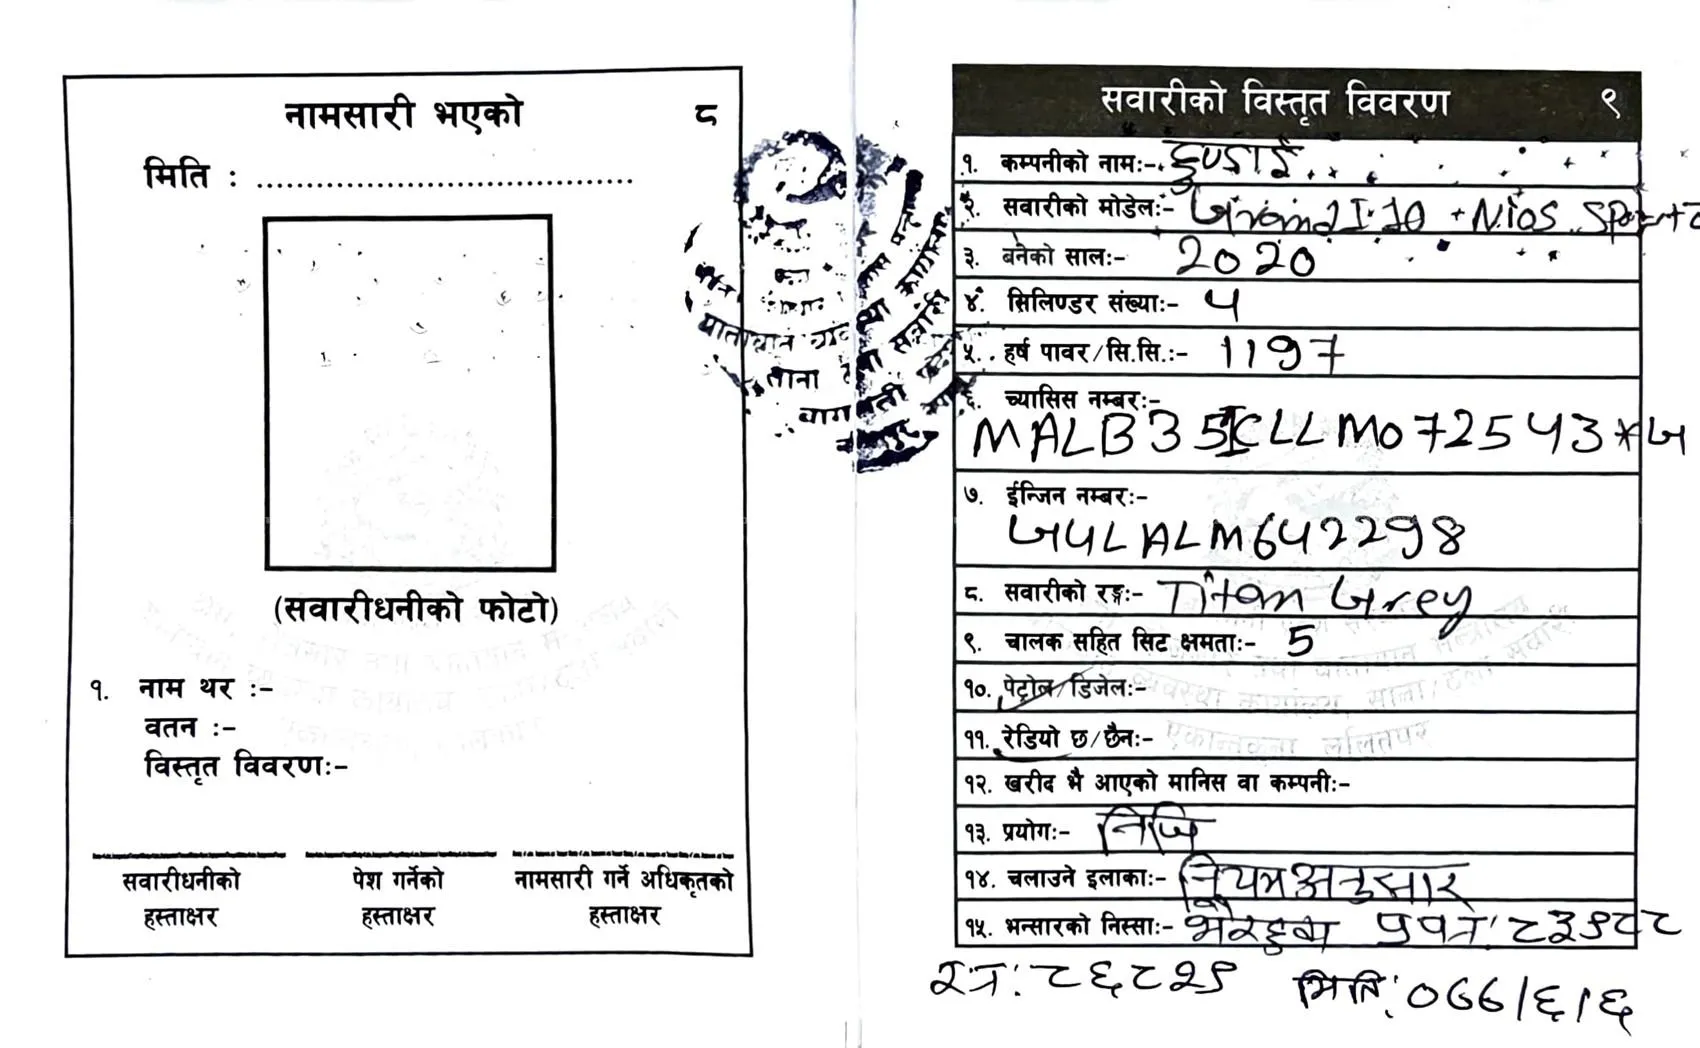 नामसारी भएको ८
मिति : ....................................
(सवारीधनीको फोटो)
१. नाम थर :-
वतन :-
विस्तृत विवरण:-
सवारीधनीको हस्ताक्षर
पेश गर्नेको हस्ताक्षर
नामसारी गर्ने अधिकृतको हस्ताक्षर
सवारीको विस्तृत विवरण ९
१. कम्पनीको नाम:- हुण्डाई
२. सवारीको मोडेल:- Grand I10 + NIOS Sportz
३. बनेको साल:- 2020
४. सिलिण्डर संख्या:- 4
५. हर्ष पावर/सि.सि.:- 1197
६. च्यासिस नम्बर:-
MALB351CLLM072543*G
७. ईन्जिन नम्बर:-
G4LALM642298
८. सवारीको रङ्ग:- Titan Grey
९. चालक सहित सिट क्षमता:- 5
१०. पेट्रोल/डिजेल:-
११. रेडियो छ/छैन:-
१२. खरीद भै आएको मानिस वा कम्पनी:-
१३. प्रयोग:- निजि
१४. चलाउने इलाका:- नियमअनुसार
१५. भन्सारको निस्सा:- भैरहवा प्र प त्र: ८३९८८
र.न: ८६८२९ मिति: ०७७/६/६